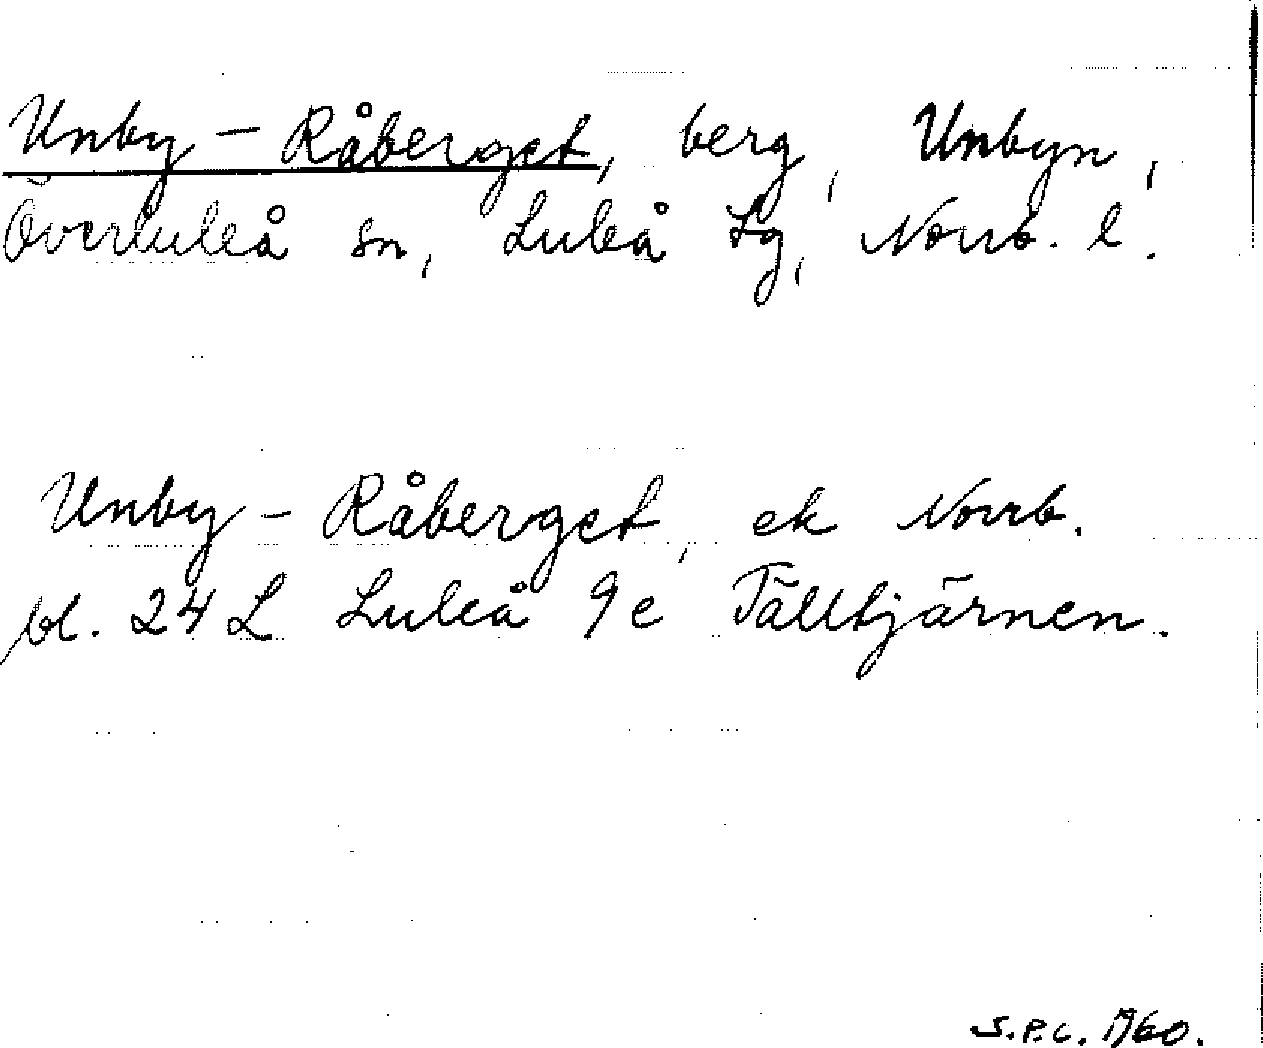 Unby-Råberget, berg, Unbyn,
Överluleå sn, Luleå tg, Norrb. l.
Unby-Råberget, ek Norrb.
bl. 24 L Luleå 9e Tälltjärnen.
S.P.C. 1960.